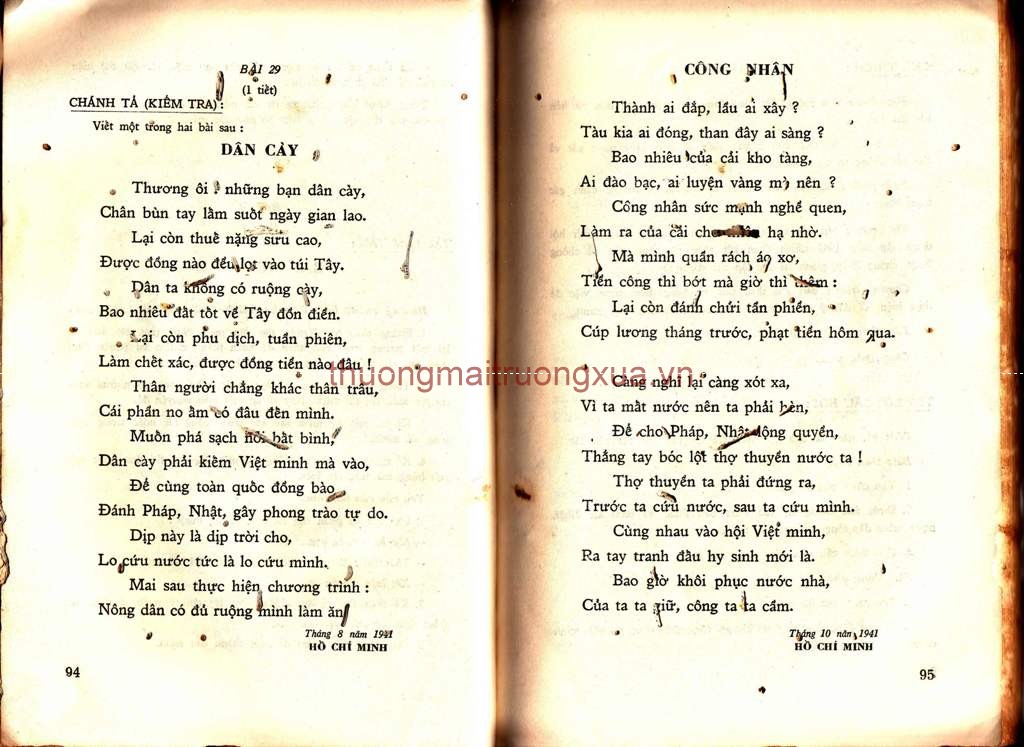 BÀI 29
(1 tiết)
CHÁNH TẢ (KIỂM TRA) :
Viết một trong hai bài sau :
DÂN CÀY
Thương ôi ! những bạn dân cày,
Chân bùn tay lấm suốt ngày gian lao.
Lại còn thuế nặng sưu cao,
Được đồng nào đều lọt vào túi Tây.
Dân ta không có ruộng cày,
Bao nhiêu đất tốt về Tây đồn điền.
Lại còn phu dịch, tuần phiên,
Làm chết xác, được đồng tiền nào đâu !
Thân người chẳng khác thân trâu,
Cái phần no ấm có đâu đến mình.
Muốn phá sạch nỗi bất bình,
Dân cày phải kiếm Việt minh mà vào,
Để cùng toàn quốc đồng bào
Đánh Pháp, Nhật, gây phong trào tự do.
Dịp này là dịp trời cho,
Lo cứu nước tức là lo cứu mình.
Mai sau thực hiện chương trình :
Nông dân có đủ ruộng mình làm ăn
Tháng 8 năm 1941
HỒ CHÍ MINH
94
CÔNG NHÂN
Thành ai đắp, lầu ai xây ?
Tàu kia ai đóng, than đây ai sàng ?
Bao nhiêu của cải kho tàng,
Ai đào bạc, ai luyện vàng mà nên ?
Công nhân sức mạnh nghề quen,
Làm ra của cải cho hạ nhờ.
Mà mình quần rách áo xơ,
Tiền công thì bớt mà giờ thì thêm :
Lại còn đánh chửi tần phiền,
Cúp lương tháng trước, phạt tiền hôm qua.
Càng nghĩ lại càng xót xa,
Vì ta mất nước nên ta phải hèn,
Để cho Pháp, Nhật lộng quyền,
Thẳng tay bóc lột thợ thuyền nước ta !
Thợ thuyền ta phải đứng ra,
Trước ta cứu nước, sau ta cứu mình.
Cùng nhau vào hội Việt minh,
Ra tay tranh đấu hy sinh mới là.
Bao giờ khôi phục nước nhà,
Của ta ta giữ, công ta ta cầm.
Tháng 10 năm 1941
HỒ CHÍ MINH
95
thuongmaitruongxua.vn